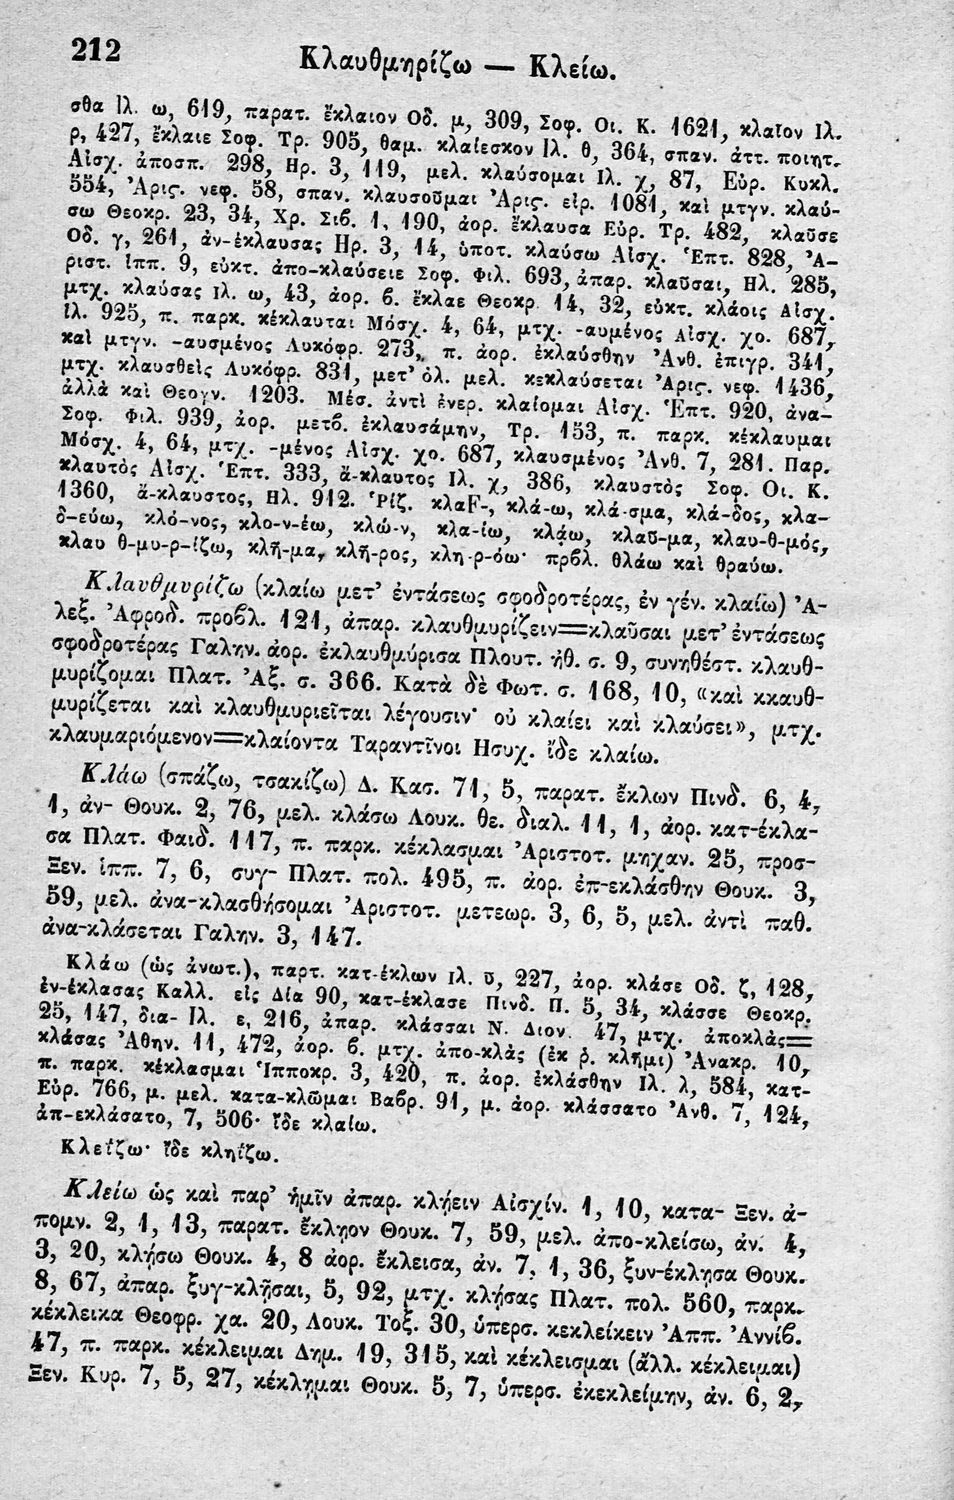 212
Κλαυθμηρίζω — Κλείω.
σθα Ἰλ. ω, 619, παρατ. ἔκλαιον Οδ. μ, 309, Σοφ. Οι. Κ. 1621, κλαῖον Ιλ.
ρ, 427, ἔκλαιε Σοφ. Τρ. 905, θαμ. κλαίεσκον Ἰλ. θ, 364, σπαν. ἀττ. ποιητ.
Αἰσχ. ἀποσπ. 298, Ηρ. 3, 119, μελ. κλαύσομαι Ιλ. χ, 87, Εὐρ. Κυκλ.
554, Ἀρις. νεφ. 58, σπαν. κλαυσοῦμαι Ἀρις. εἰρ. 1081, καὶ μτγν. κλαύ-
σω Θεοκρ. 23, 34, Χρ. Σιβ. 1, 190, ἀορ. ἔκλαυσα Εὐρ. Τρ. 482, κλαῦσε
Οδ. γ, 261, ἀν-έκλαυσας Ηρ. 3, 14, ὑποτ. κλαύσω Αἰσχ. Ἑπτ. 828, Ἀ-
ριστ. ἱππ. 9, εὐκτ. ἀπο-κλαύσειε Σοφ. Φιλ. 693, ἀπαρ. κλαῦσαι, Ηλ. 285,
μτχ. κλαύσας Ιλ. ω, 43, ἀορ. β. ἔκλαε Θεοκρ 14, 32, εὐκτ. κλάοις Αἰσχ.
Ἰλ. 925, π. παρκ. κέκλαυται Μόσχ. 4, 64, μτχ. -αυμένος Αἰσχ. χο. 687,
καὶ μτγν. -αυσμένος Λυκόφρ. 273, π. ἀορ. ἐκλαύσθην Ἀνθ. ἐπιγρ. 341,
μτχ. κλαυσθεὶς Λυκόφρ. 831, μετ' ὀλ. μελ. κεκλαύσεται Ἀρις. νεφ. 1436,
ἀλλὰ καὶ Θεογν. 1203. Μέσ. ἀντὶ ἐνερ. κλαίομαι Αἰσχ. Ἑπτ. 920, ἀνα-
Σοφ. Φιλ. 939, ἀορ. μετβ. ἐκλαυσάμην, Τρ. 153, π. παρκ. κέκλαυμαι
Μόσχ. 4, 64, μτχ. -μένος Αἰσχ. χο. 687, κλαυσμένος Ἀνθ. 7, 281. Παρ.
κλαυτὸς Αἰσχ. Ἑπτ. 333, ἄ-κλαυτος Ιλ. χ, 386, κλαυστὸς Σοφ. Οι. Κ.
1360, ἄ-κλαυστος, Ηλ. 912. Ῥίζ. κλαF-, κλά-ω, κλά-σμα, κλά-δος, κλα-
δ-εύω, κλό-νος, κλο-ν-έω, κλώ-ν, κλα-ίω, κλάω, κλαῦ-μα, κλαυ-θ-μός,
κλαυ θ-μυ-ρ-ίζω, κλῆ-μα, κλῆ-ρος, κλη-ρ-όω· πρβλ. θλάω καὶ θραύω.
Κλαυθμυρίζω (κλαίω μετ' ἐντάσεως σφοδροτέρας, ἐν γέν. κλαίω) Ἀ-
λεξ. Ἀφροδ. προβλ. 121, ἀπαρ. κλαυθμυρίζειν=κλαῦσαι μετ' ἐντάσεως
σφοδροτέρας Γαλην. ἀορ. ἐκλαυθμύρισα Πλουτ. ἠθ. σ. 9, συνηθέστ. κλαυθ-
μυρίζομαι Πλατ. Ἀξ. σ. 366. Κατὰ δὲ Φωτ. σ. 168, 10, «καὶ κκαυθ-
μυρίζεται καὶ κλαυθμυριεῖται λέγουσιν· οὐ κλαίει καὶ κλαύσει», μτχ.
κλαυμαριόμενον=κλαίοντα Ταραντῖνοι Ησυχ. ἴδε κλαίω.
Κλάω (σπάζω, τσακίζω) Δ. Κασ. 71, 5, παρατ. ἔκλων Πινδ. 6, 4,
1, ἀν- Θουκ. 2, 76, μελ. κλάσω Λουκ. θε. διαλ. 11, 1, ἀορ. κατ-έκλα-
σα Πλατ. Φαιδ. 117, π. παρκ. κέκλασμαι Ἀριστοτ. μηχαν. 25, προσ-
Ξεν. ἱππ. 7, 6, συγ- Πλατ. πολ. 495, π. ἀορ. ἐπ-εκλάσθην Θουκ. 3,
59, μελ. ἀνα-κλασθήσομαι Ἀριστοτ. μετεωρ. 3, 6, 5, μελ. ἀντὶ παθ.
ἀνα-κλάσεται Γαλην. 3, 147.
Κλάω (ὡς ἀνωτ.), παρτ. κατ-έκλων Ιλ. υ, 227, ἀορ. κλάσε Οδ. ζ, 128,
ἐν-έκλασας Καλλ. εἰς Δία 90, κατ-έκλασε Πινδ. Π. 5, 34, κλάσσε Θεοκρ.
25, 147, δια- Ἰλ. ε, 216, ἀπαρ. κλάσσαι Ν. Διον. 47, μτχ. ἀποκλὰς=
κλάσας Ἀθην. 11, 472, ἀορ. β. μτχ. ἀπο-κλὰς (ἐκ ῥ. κλῆμι) Ἀνακρ. 10,
π. παρκ. κέκλασμαι Ἱπποκρ. 3, 420, π. ἀορ. ἐκλάσθην Ιλ. λ, 584, κατ-
Εὐρ. 766, μ. μελ. κατα-κλῶμαι Βαβρ. 91, μ. ἀορ. κλάσσατο Ἀνθ. 7, 124,
ἀπ-εκλάσατο, 7, 506· ἴδε κλαίω.
Κλεΐζω· ἴδε κληΐζω.
Κλείω ὡς καὶ παρ' ἡμῖν ἀπαρ. κλήειν Αἰσχίν. 1, 10, κατα- Ξεν. ἀ-
πομν. 2, 1, 13, παρατ. ἔκληον Θουκ. 7, 59, μελ. ἀπο-κλείσω, ἀν. 4,
3, 20, κλήσω Θουκ. 4, 8 ἀορ. ἔκλεισα, ἀν. 7, 1, 36, ξυν-έκλησα Θουκ.
8, 67, ἀπαρ. ξυγ-κλῆσαι, 5, 92, μτχ. κλήσας Πλατ. πολ. 560, παρκ.
κέκλεικα Θεοφρ. χα. 20, Λουκ. Τοξ. 30, ὑπερσ. κεκλείκειν Ἀππ. Ἀννίβ.
47, π. παρκ. κέκλειμαι Δημ. 19, 315, καὶ κέκλεισμαι (ἄλλ. κέκλειμαι)
Ξεν. Κυρ. 7, 5, 27, κέκλημαι Θουκ. 5, 7, ὑπερσ. ἐκεκλείμην, ἀν. 6, 2,